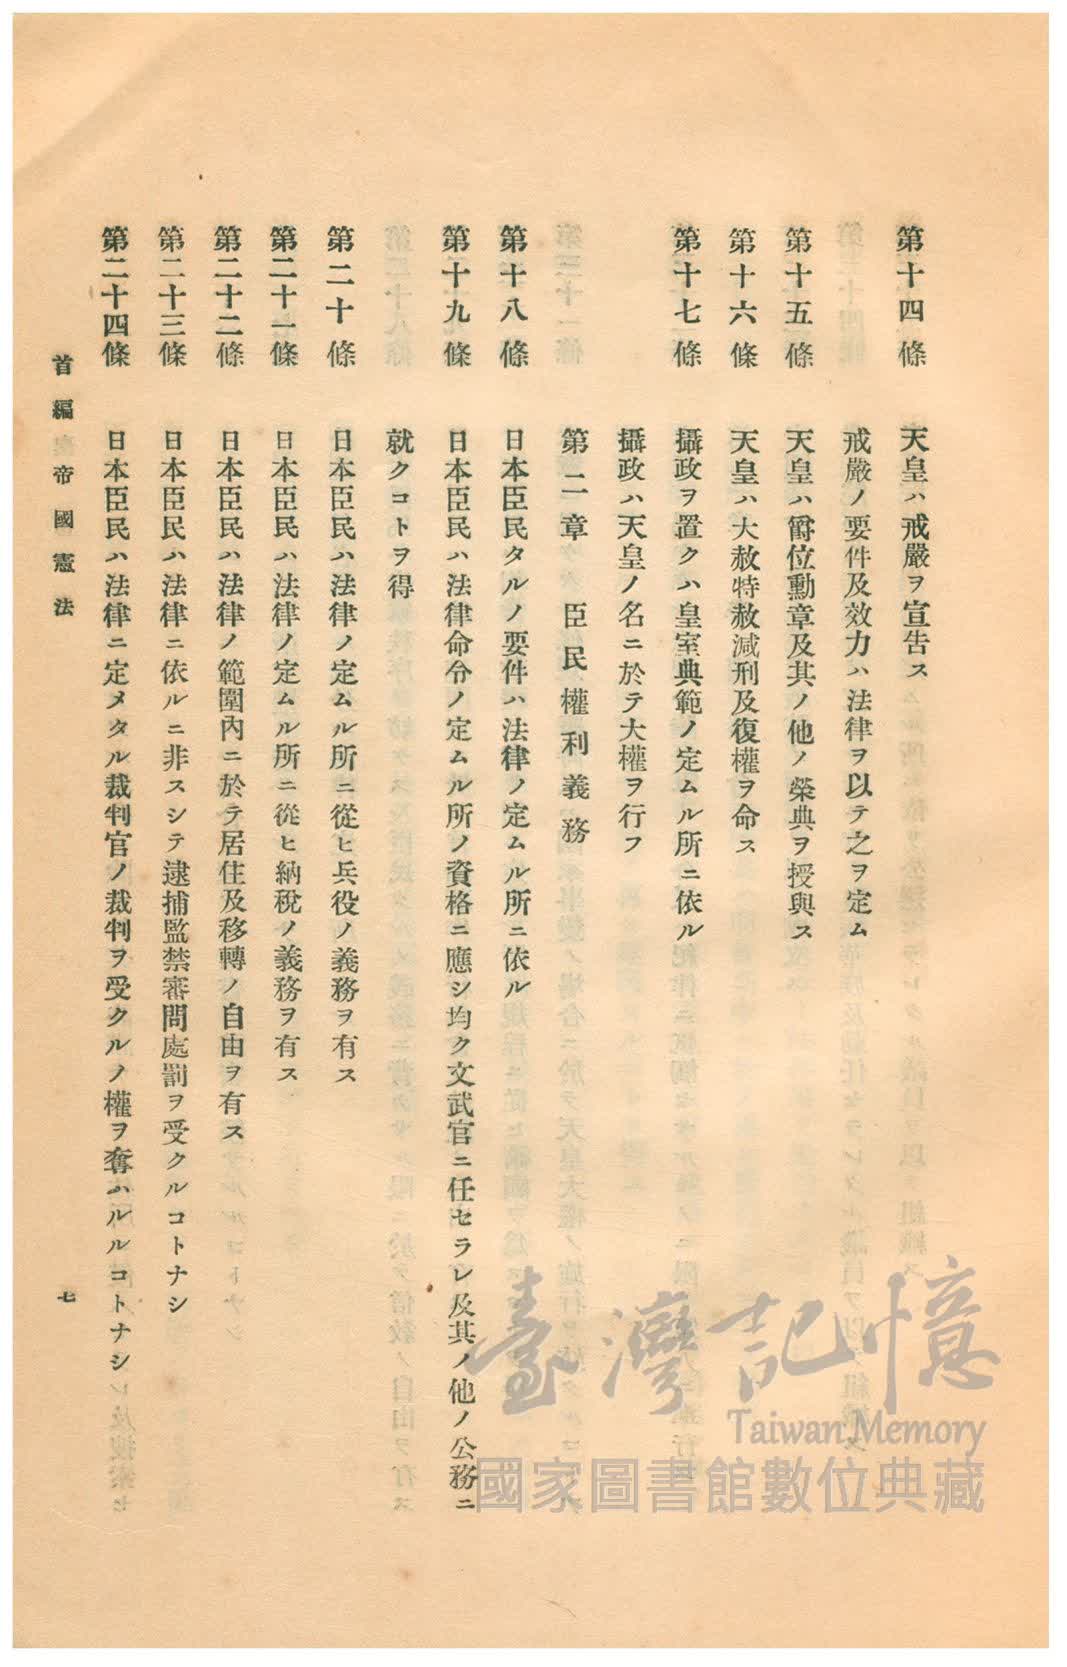 第十四條 天皇ハ戒嚴ヲ宣告ス
戒嚴ノ要件及效力ハ法律ヲ以テ之ヲ定ム
第十五條 天皇ハ爵位勳章及其ノ他ノ榮典ヲ授與ス
第十六條 天皇ハ大赦特赦減刑及復權ヲ命ス
第十七條 攝政ヲ置クハ皇室典範ノ定ムル所ニ依ル
攝政ハ天皇ノ名ニ於テ大權ヲ行フ
第二章 臣民權利義務
第十八條 日本臣民タルノ要件ハ法律ノ定ムル所ニ依ル
第十九條 日本臣民ハ法律命令ノ定ムル所ノ資格ニ應シ均ク文武官ニ任セラレ及其ノ他ノ公務ニ
就クコトヲ得
第二十條 日本臣民ハ法律ノ定ムル所ニ從ヒ兵役ノ義務ヲ有ス
第二十一條 日本臣民ハ法律ノ定ムル所ニ從ヒ納稅ノ義務ヲ有ス
第二十二條 日本臣民ハ法律ノ範圍內ニ於テ居住及移轉ノ自由ヲ有ス
第二十三條 日本臣民ハ法律ニ依ルニ非スシテ逮捕監禁審問處罰ヲ受クルコトナシ
第二十四條 日本臣民ハ法律ニ定メタル裁判官ノ裁判ヲ受クルノ權ヲ奪ハルルコトナシ
首編 帝國憲法
七
臺灣記憶
Taiwan Memory
國家圖書館數位典藏